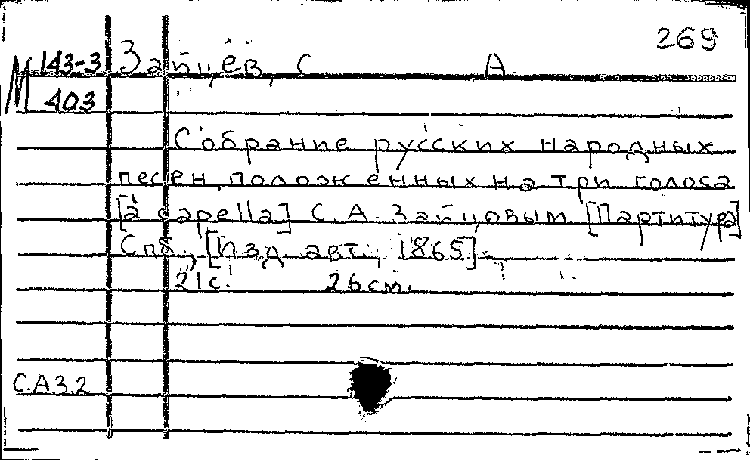 269
М 143-3 Зайцев, С А
403
Собрание русских народных
песен, положенных на три голоса
[a capella] С. А. Зайцовым [Партитура]
Спб., [Изд. авт., 1865].
21с. 26см.
С.А.З.2